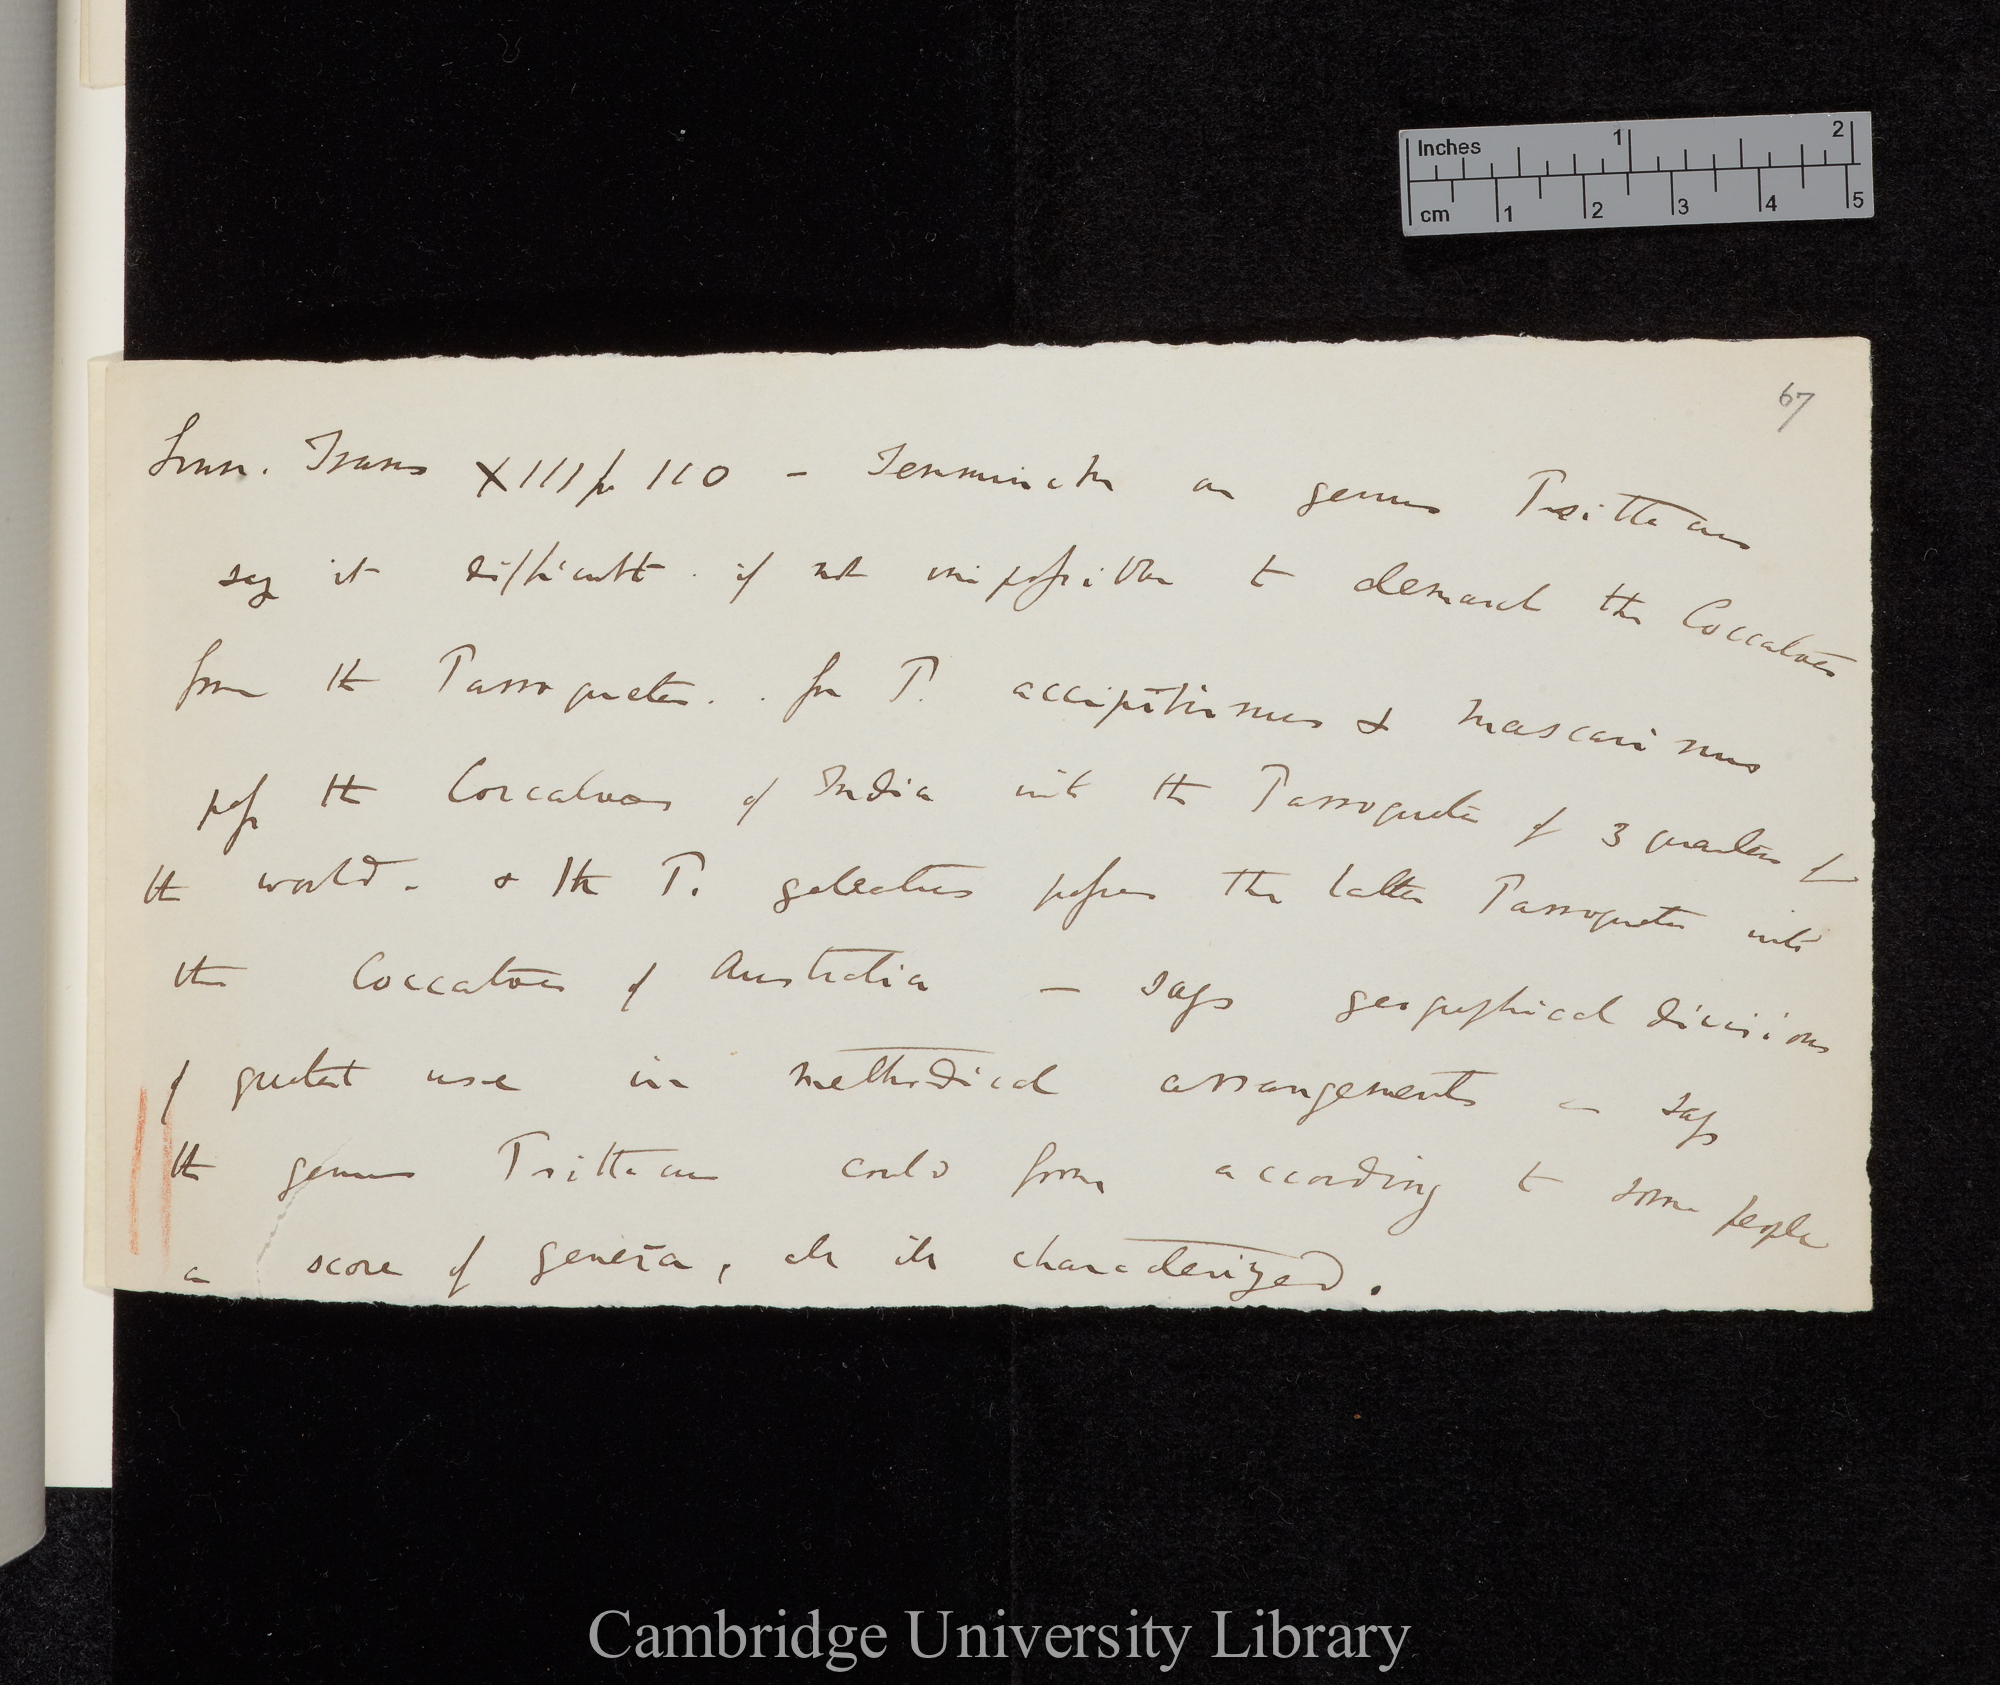 Inches 1 2
cm 1 2 3 4 5
67
Linn. Trans XIII p 110 — Temminck on genus Psittacus
say it difficult if not impossible to demarch the Coccatoos
from the Parroquets. . for P. accipitrinus & mascarinus
pass the Coccatoos of India into the Parroquets of 3 quarters of
the world. & the P. galeatus passes the latter Parroquets into
the Coccatoos of Australia — says geographical divisions
of greatest use in methodical arrangements — says
the genus Psittacus could form according to some people
a score of genera, all ill characterized.
Cambridge University Library